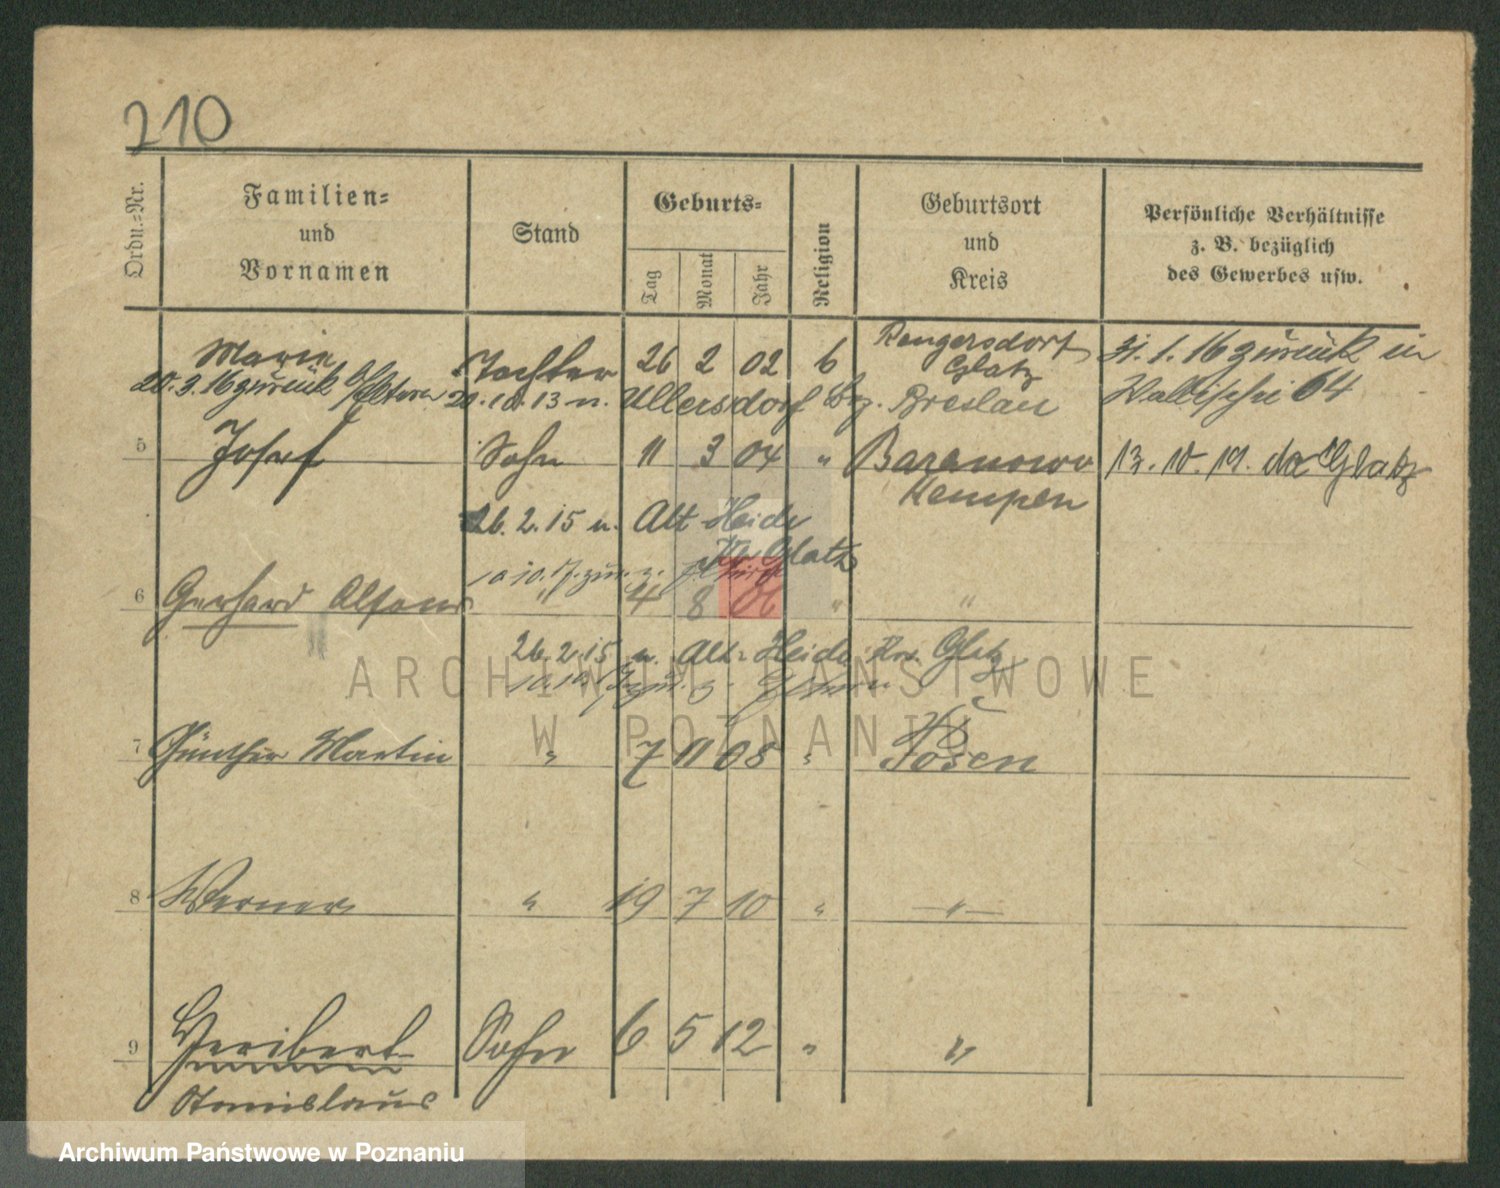 210
Ordn.-Nr.
Familien-
und
Vornamen
Stand
Geburts-
Tag
Monat
Jahr
Religion
Geburtsort
und
Kreis
Persönliche Verhältnisse
z. B. bezüglich
des Gewerbes usw.
Marie Tochter 26 2 02 6 Rengersdorf 31. 1. 16 zurück in
Glatz
20.3.16 zurück Eltern 20.10.13 n. Ullersdorf Bez. Breslau Wallischei 64
5 Josef Sohn 11 3 04 " Baranowo 13. 10. 19. Glatz
Kempen
26.2.15 n. Alt Heide
Kr Glatz
10.10.17. zur.
6 Gerhard Alfons " 4 8 06 " "
26.2.15 n. Alt-Heide Kr. Glatz
10.10.17
7 Günther Martin " 7 11 08 " Posen
8 Werner " 19 7 10 " "
9 Heribert Sohn 6 5 12 " "
Stanislaus
ARCHIWUM PAŃSTWOWE
W POZNANIU
Archiwum Państwowe w Poznaniu